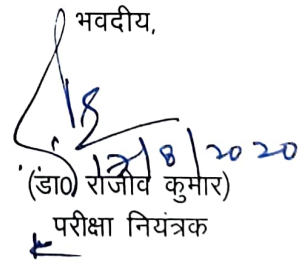 भवदीय,
8/2020
(डा0 राजीव कुमार)
परीक्षा नियंत्रक